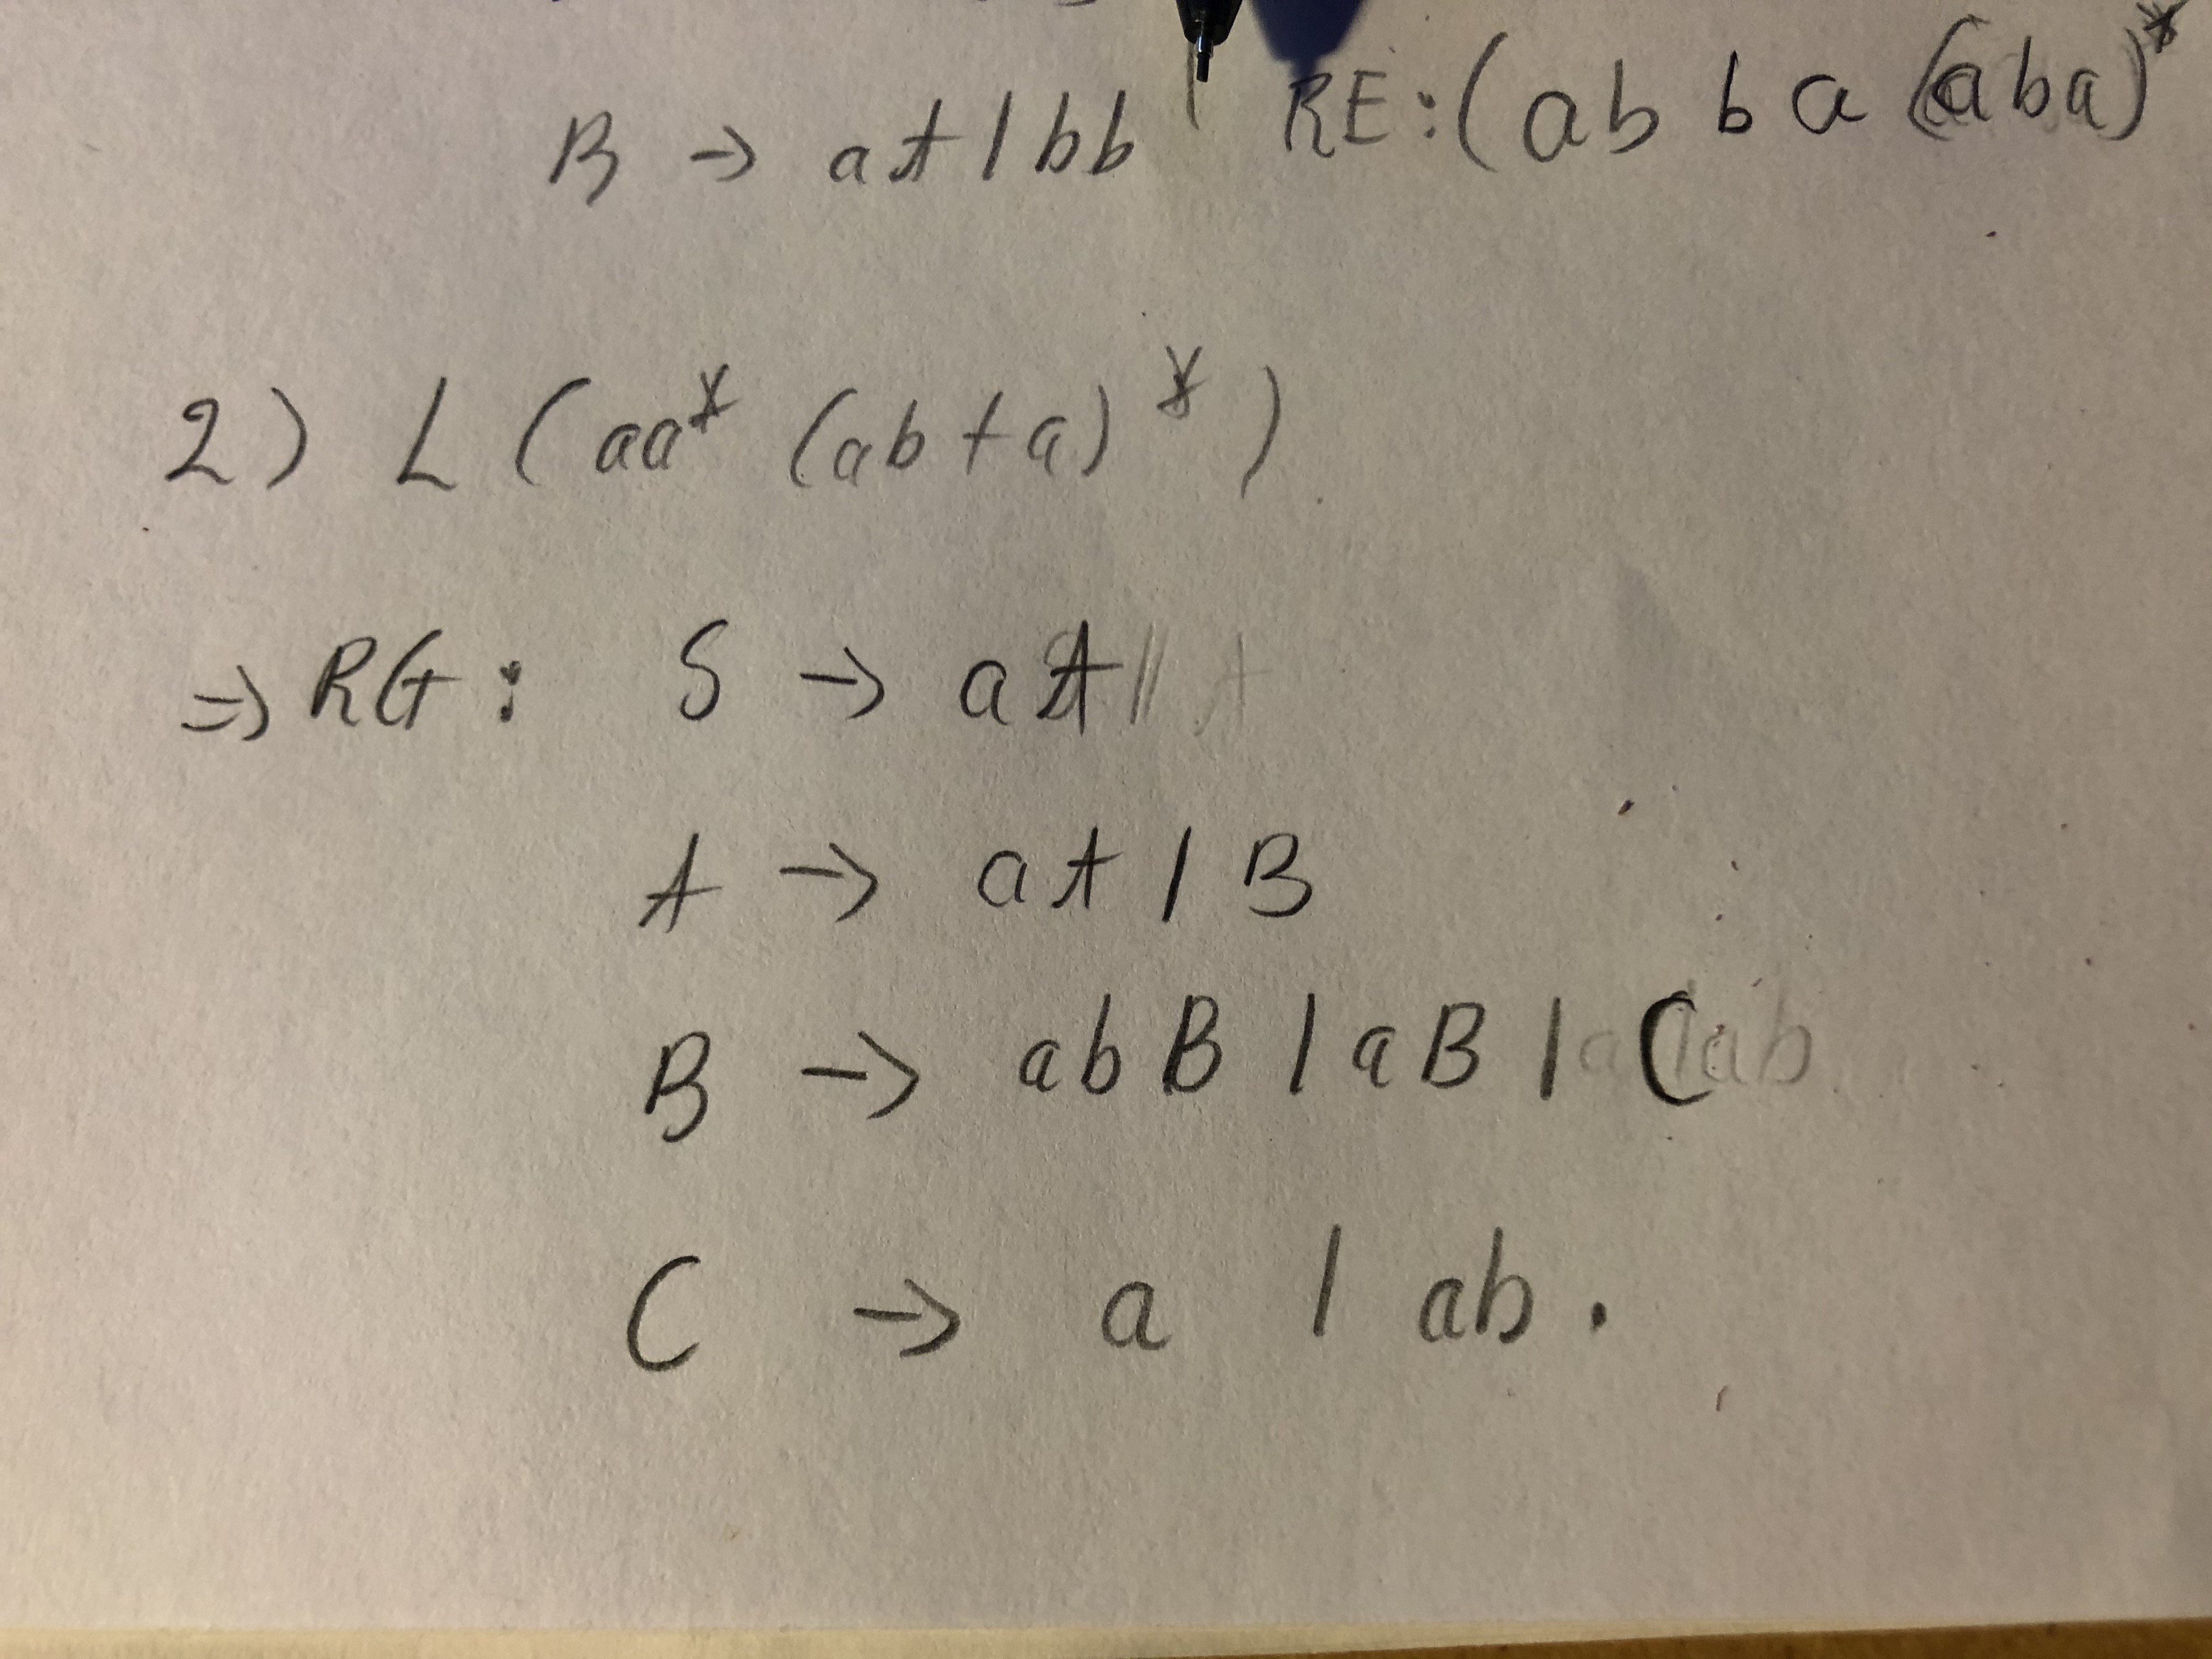 B → aA | bb RE: (ab b a (aba)*
2) L (aa* (ab + a)*)
⇒ RG: S → aA
A → aA | B
B → abB | aB | C
C → a | ab.